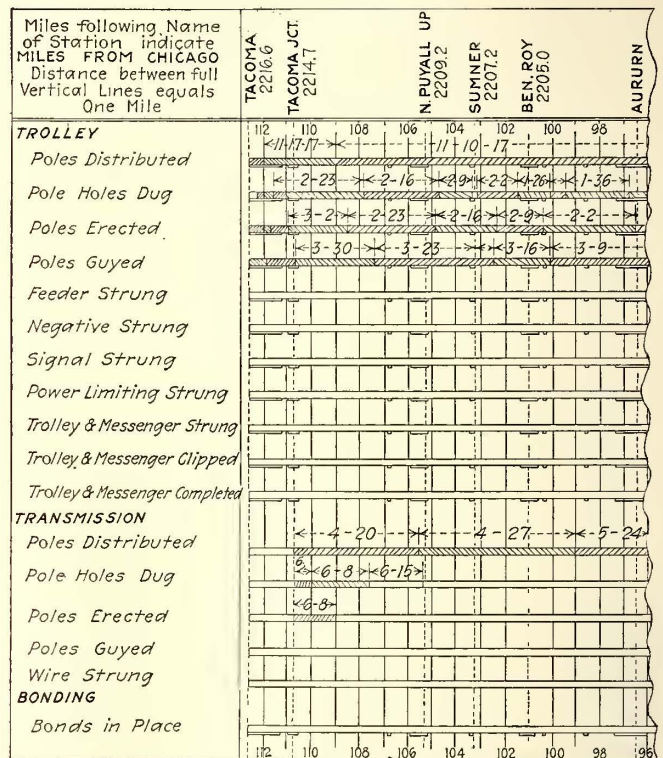 Miles following Name
of Station indicate
MILES FROM CHICAGO
Distance between full
Vertical Lines equals
One Mile
TACOMA
2216.6
TACOMA JCT.
2214.7
N. PUYALL UP
2209.2
SUMNER
2207.2
BEN. ROY
2205.0
AURURN
112 110 108 106 104 102 100 98
TROLLEY
11-17-17 11-10-17
Poles Distributed
2-23 2-16 2-9 2-2 1-26 1-36
Pole Holes Dug
3-2 2-23 2-16 2-9 2-2
Poles Erected
3-30 3-23 3-16 3-9
Poles Guyed
Feeder Strung
Negative Strung
Signal Strung
Power Limiting Strung
Trolley & Messenger Strung
Trolley & Messenger Clipped
Trolley & Messenger Completed
TRANSMISSION
4-20 4-27 5-24
Poles Distributed
6 6-8 6-15
Pole Holes Dug
6-8
Poles Erected
Poles Guyed
Wire Strung
BONDING
Bonds in Place
112 110 108 106 104 102 100 98 96